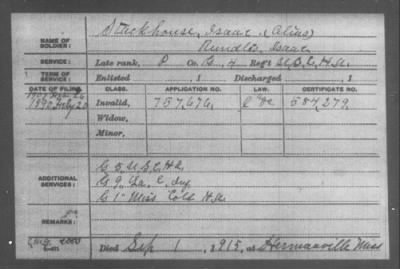 NAME OF SOLDIER:
Stackhouse, Isaac (Alias)
Rundles, Isaac
SERVICE: Late rank, P Co. G, 4 Reg't U.S.C.H.A.
TERM OF SERVICE: Enlisted , 1 Discharged , 1
DATE OF FILING. CLASS. APPLICATION NO. LAW. CERTIFICATE NO.
1890 July 28 Invalid, 757,676, 587,279,
Widow,
Minor,
ADDITIONAL SERVICES:
G 5 U.S.C.H.A.
G 9, La. C. Inf
G 1" Miss Cold H.A.
REMARKS:
Died Sep 1, 1915, at Hermanville Miss